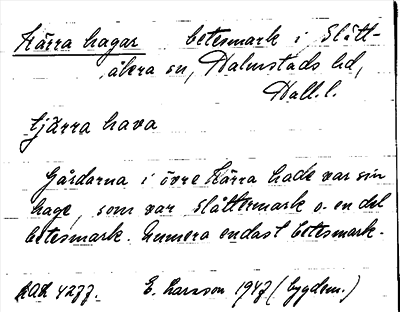 Kärra hagar betesmark i Slätt-
åkra sn, Halmstads hd,
Hall.l.
tjärra hava
Gårdarna i övre Kärra hade var sin
hage, som var slåttermark o. en del
betesmark. Numera endast betesmark.
4277. E. Larsson 1947 (bygdem.)